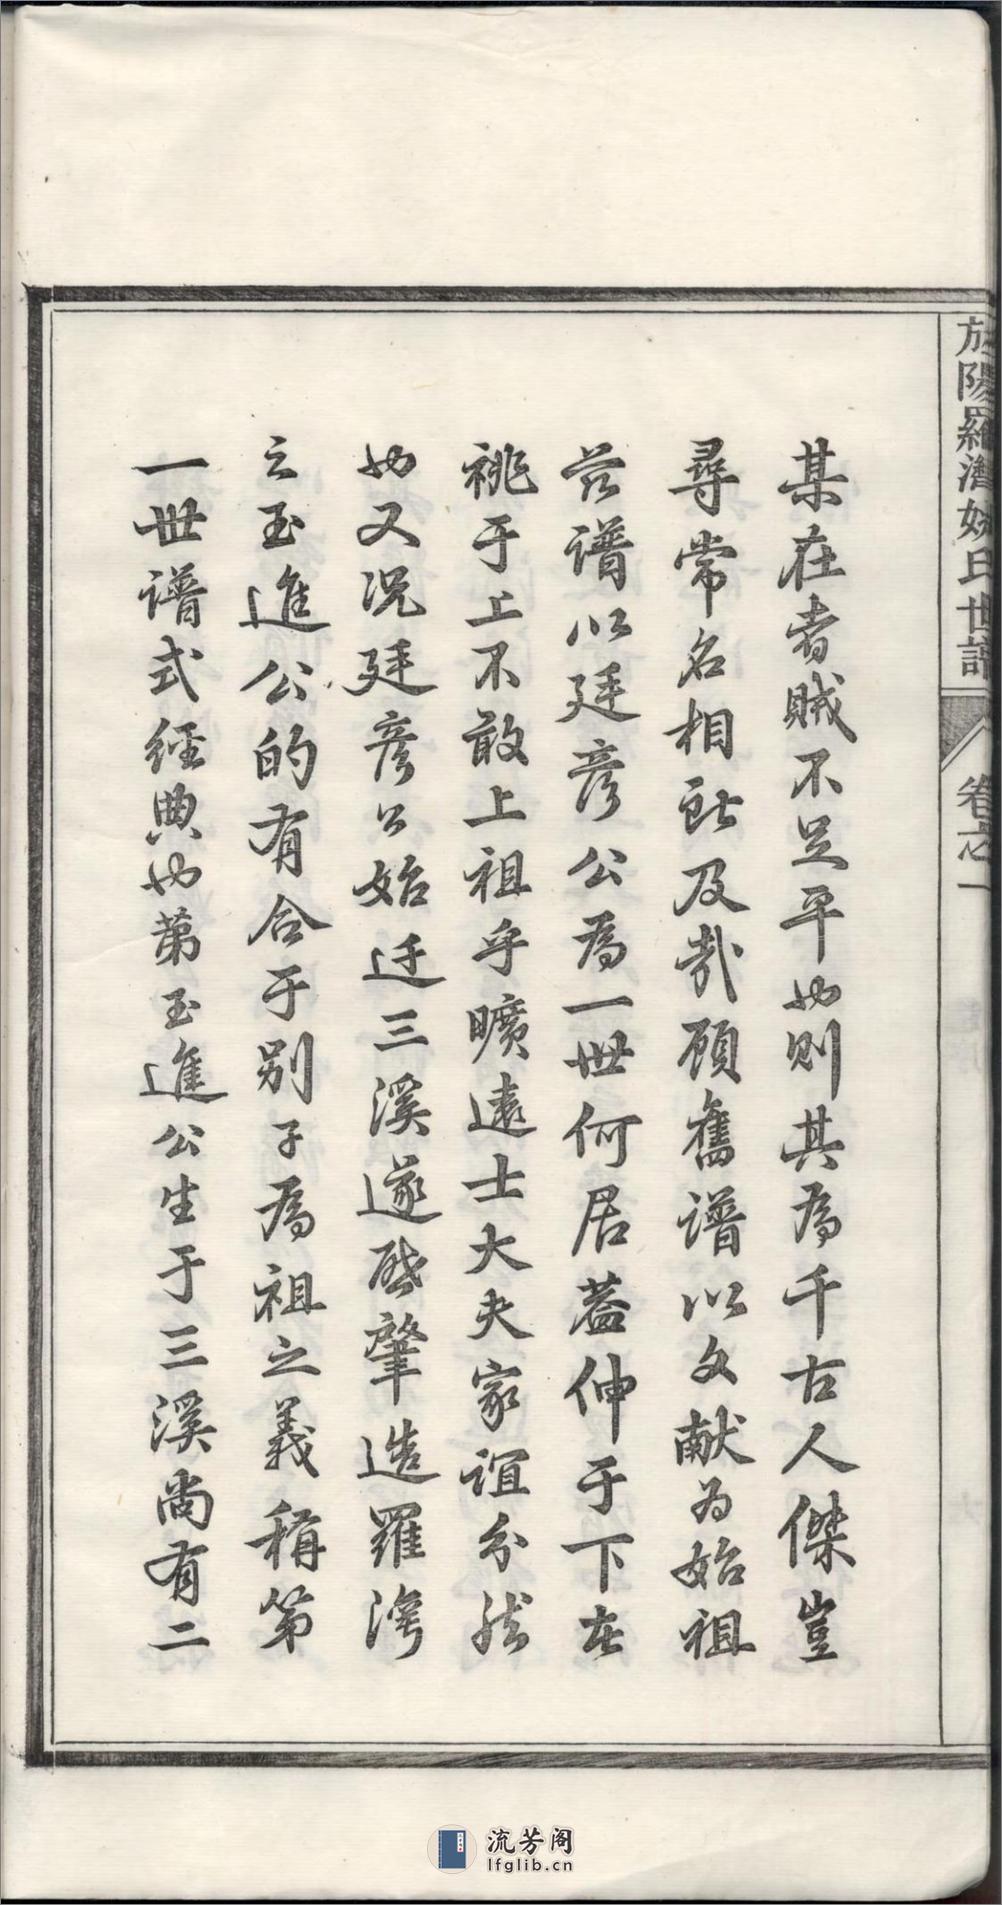 某在者賊不足平也則其為千古人傑豈
尋常名相所及哉顾舊譜以文献为始祖
茲譜以廷彦公為一世何居蓋伸于下在
祧于上不敢上祖乎曠遠士大夫家誼分然
也又況廷彦公始迁三溪遂啟肇造羅灣
之玉進公的有合于别子為祖之義稱第
一世譜式經典也苐玉進公生于三溪尚有二
陽羅灣姚氏世譜
卷之一
流芳阁
lfglib.cn